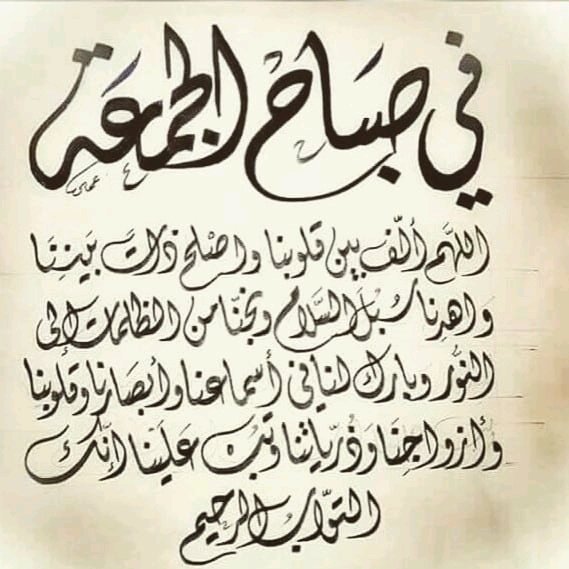 في صباح الجمعة
اللهم ألّف بين قلوبنا واصلح ذات بَيننَا
واهدِنا سُبلَ السَّلام ونجّنا من الظلمات إلى
النُّور وبارك لنا في أسماعنا وأبصَارنا وقلوبنا
وأزواجنَا وَذُرّياتنا وَتُبْ عَلَينا إنّك
التوّاب الرحيم